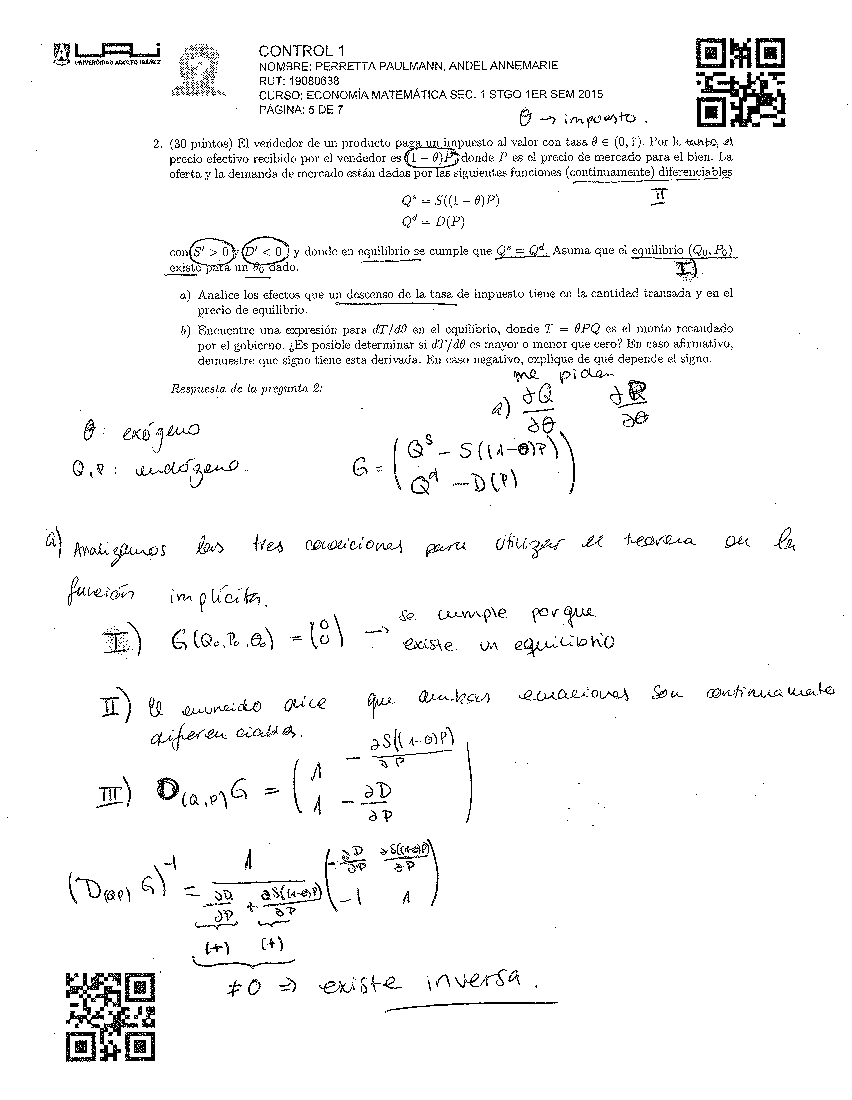 UAI
UNIVERSIDAD ADOLFO IBÁÑEZ
CONTROL 1
NOMBRE: PERRETTA PAULMANN, ANDEL ANNEMARIE
RUT: 19080638
CURSO: ECONOMÍA MATEMÁTICA SEC. 1 STGO 1ER SEM 2015
PÁGINA: 5 DE 7
θ → impuesto.
2. (30 puntos) El vendedor de un producto paga un impuesto al valor con tasa θ ∈ (0, 1). Por lo tanto, el
precio efectivo recibido por el vendedor es (1 − θ)P, donde P es el precio de mercado para el bien. La
oferta y la demanda de mercado están dadas por las siguientes funciones (continuamente) diferenciables
II
Qˢ = S((1 − θ)P)
Qᵈ = D(P)
con S' > 0 y D' < 0 y donde en equilibrio se cumple que Qˢ = Qᵈ. Asuma que el equilibrio (Q₀, P₀)
existe para un θ₀ dado.
I
a) Analice los efectos que un descenso de la tasa de impuesto tiene en la cantidad transada y en el
precio de equilibrio.
b) Encuentre una expresión para dT/dθ en el equilibrio, donde T = θPQ es el monto recaudado
por el gobierno. ¿Es posible determinar si dT/dθ es mayor o menor que cero? En caso afirmativo,
demuestre que signo tiene esta derivada. En caso negativo, explique de qué depende el signo.
me piden
Respuesta de la pregunta 2:
a) ∂Q/∂θ ∂P/∂θ
θ: exógeno
Q, P: endógeno.
G = ( Qˢ − S((1−θ)P)
Qᵈ − D(P) )
a) Analizamos las tres condiciones para utilizar el teorema de la
función implícita.
I) G(Q₀, P₀, θ₀) = (0 0) → se cumple porque
existe un equilibrio
II) El enunciado dice que ambas ecuaciones son continuamente
diferenciables.
III) D(Q,P) G = ( 1 − ∂S((1−θ)P)/∂P
1 − ∂D/∂P )
(D(Q,P) G)⁻¹ = 1 / (∂D/∂P + ∂S((1−θ)P)/∂P) ( −∂D/∂P ∂S((1−θ)P)/∂P
−1 1 )
(+) (+)
≠ 0 ⇒ existe inversa.